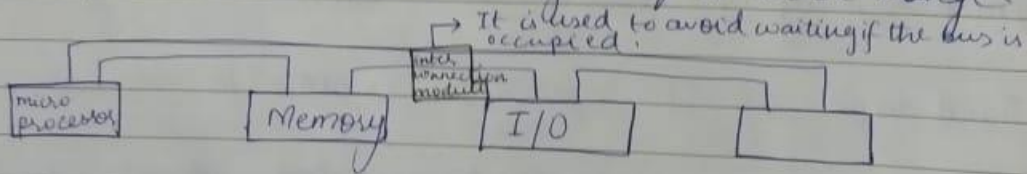 It is used to avoid waiting if the bus is
occupied.
inter
connection
module
micro
processor
Memory
I/O